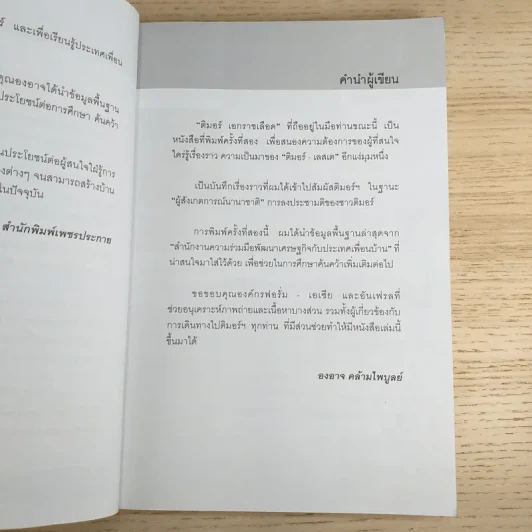 ร์ และเพื่อเรียนรู้ประเทศเพื่อน
คุณองอาจได้นำข้อมูลพื้นฐาน
ประโยชน์ต่อการศึกษา ค้นคว้า
นประโยชน์ต่อผู้สนใจใฝ่รู้การ
งต่างๆ จนสามารถสร้างบ้าน
ในปัจจุบัน
สำนักพิมพ์เพชรประกาย
คำนำผู้เขียน
“ติมอร์ เอกราชเลือด” ที่ถืออยู่ในมือท่านขณะนี้ เป็น
หนังสือที่พิมพ์ครั้งที่สอง เพื่อสนองความต้องการของผู้ที่สนใจ
ใคร่รู้เรื่องราว ความเป็นมาของ “ติมอร์ - เลสเต” อีกแง่มุมหนึ่ง
เป็นบันทึกเรื่องราวที่ผมได้เข้าไปสัมผัสติมอร์ฯ ในฐานะ
“ผู้สังเกตการณ์นานาชาติ” การลงประชามติของชาวติมอร์
การพิมพ์ครั้งที่สองนี้ ผมได้นำข้อมูลพื้นฐานล่าสุดจาก
“สำนักงานความร่วมมือพัฒนาเศรษฐกิจกับประเทศเพื่อนบ้าน” ที่
น่าสนใจมาใส่ไว้ด้วย เพื่อช่วยในการศึกษาค้นคว้าเพิ่มเติมต่อไป
ขอขอบคุณองค์กรฟอรั่ม - เอเชีย และอันเฟรลที่
ช่วยอนุเคราะห์ภาพถ่ายและเนื้อหาบางส่วน รวมทั้งผู้เกี่ยวข้องกับ
การเดินทางไปติมอร์ฯ ทุกท่าน ที่มีส่วนช่วยทำให้มีหนังสือเล่มนี้
ขึ้นมาได้
องอาจ คล้ามไพบูลย์